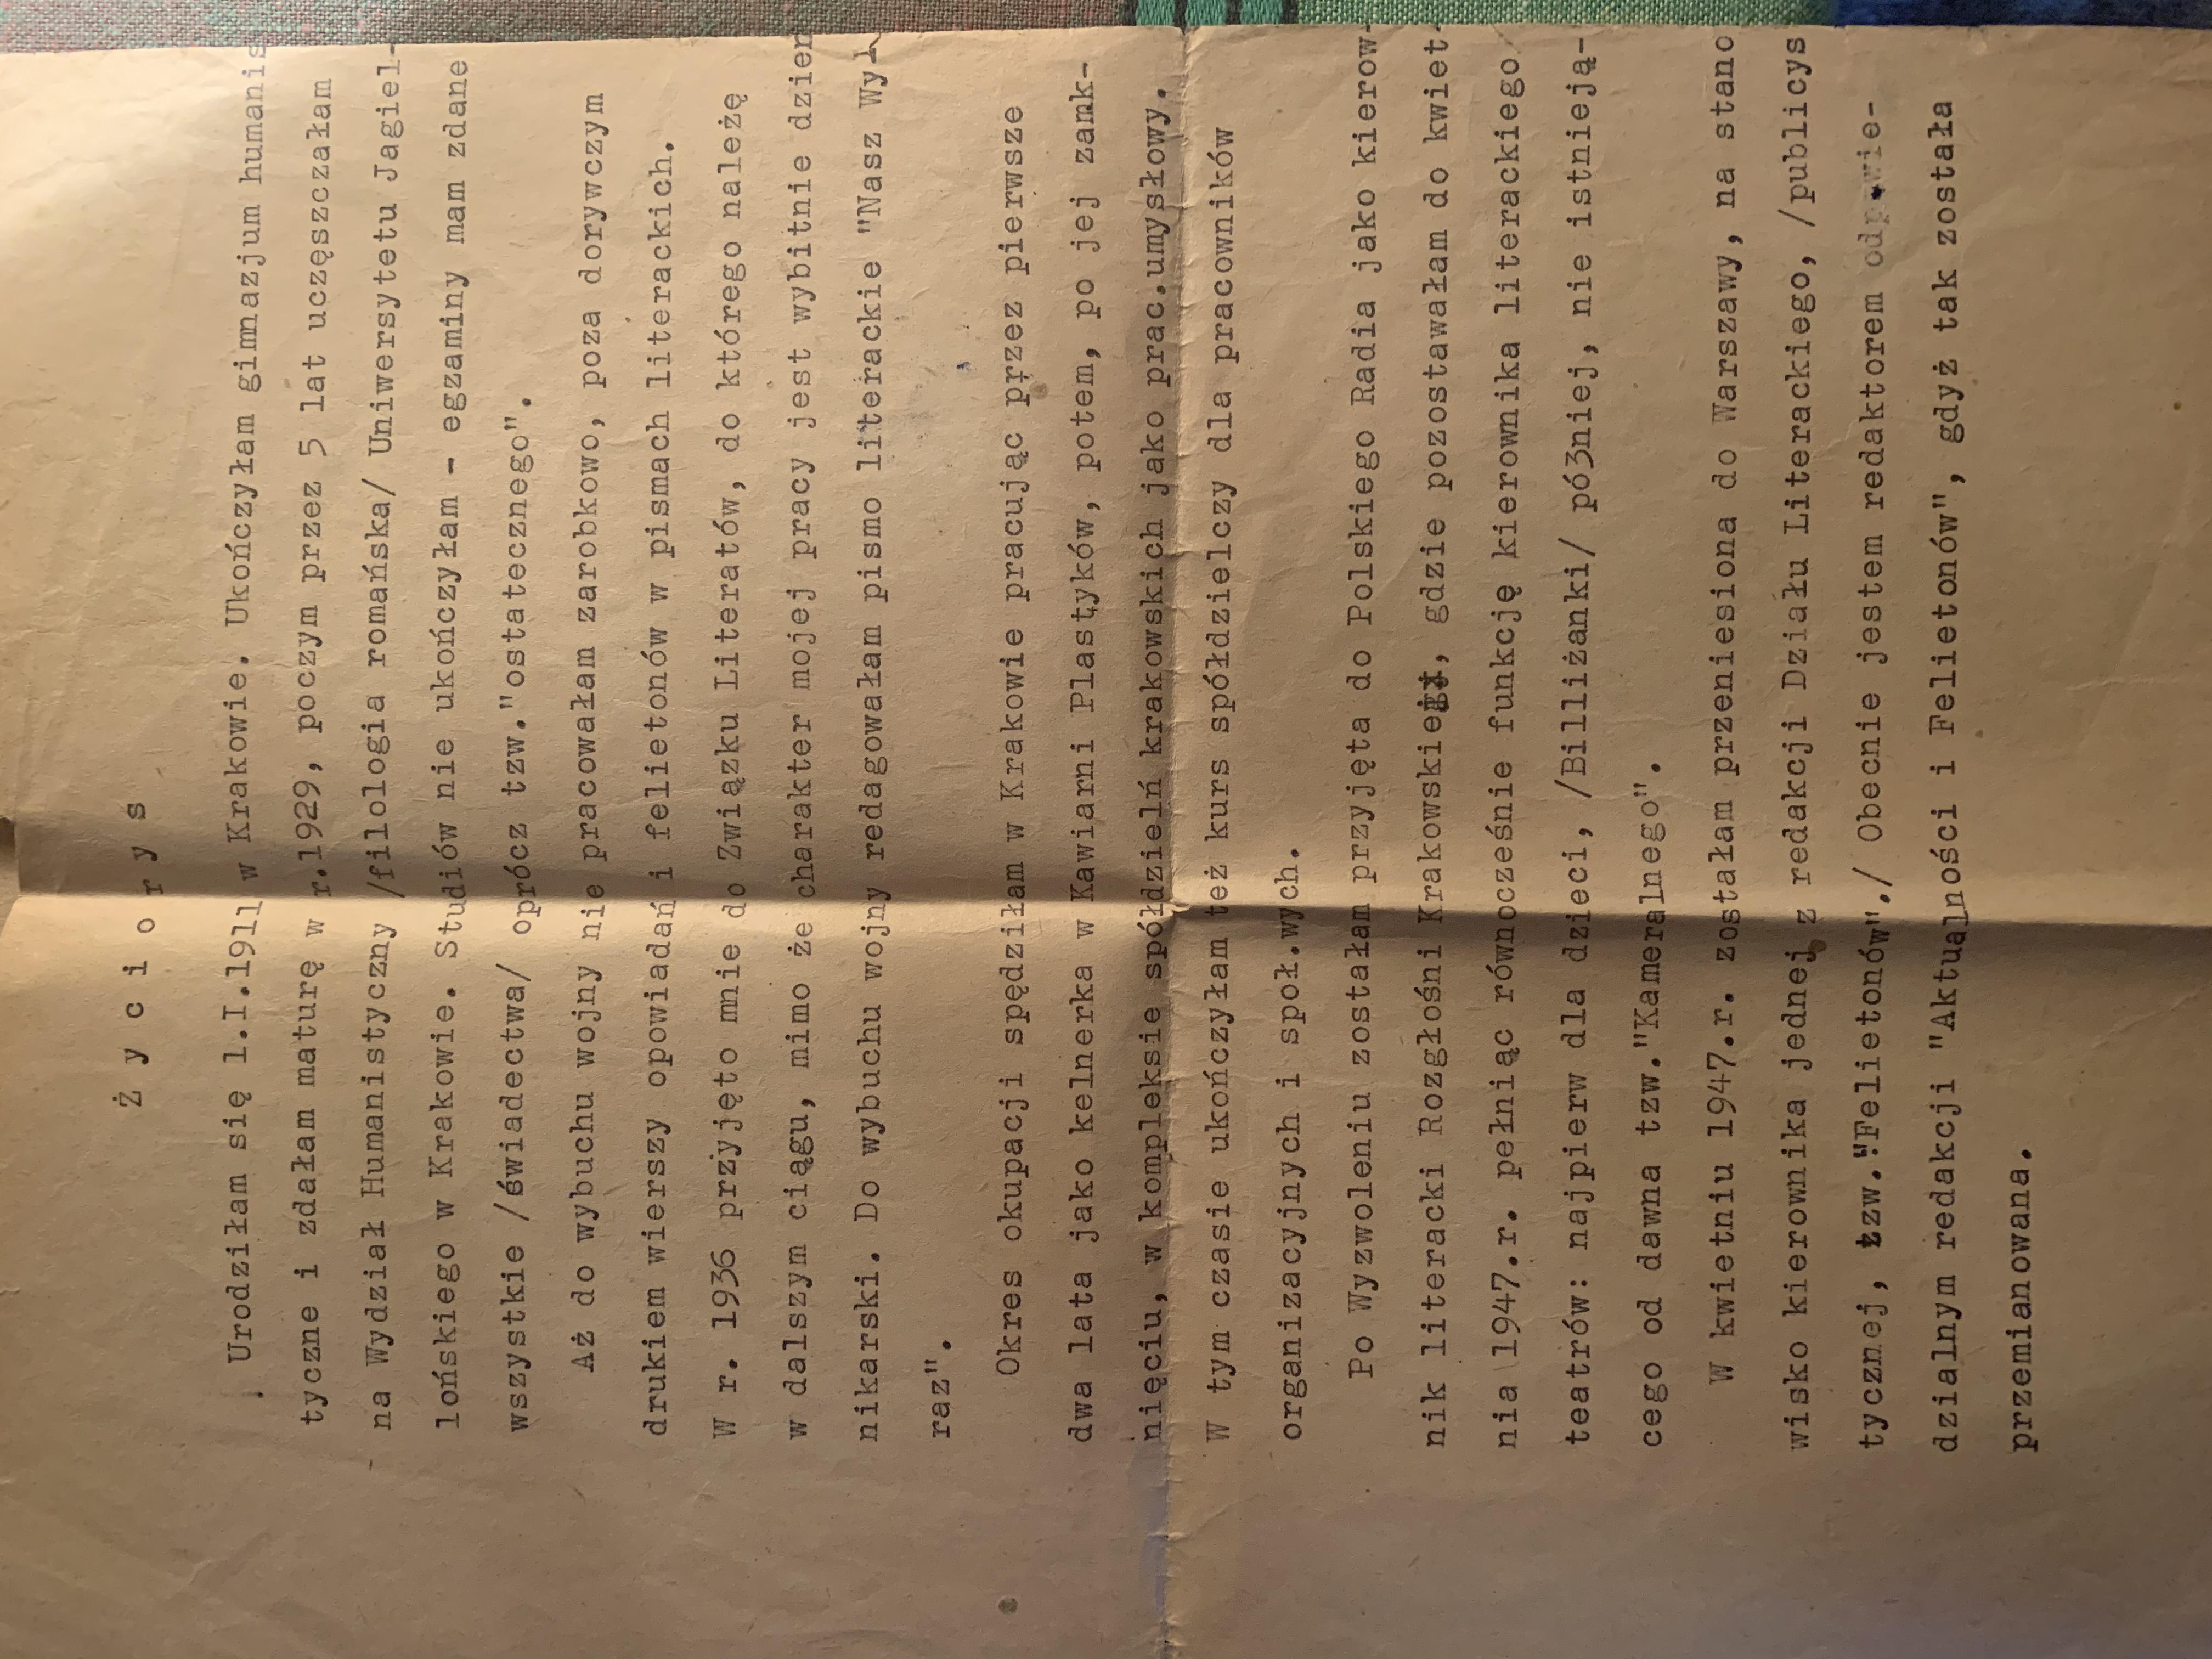 Ż y c i o r y s
Urodziłam się 1.I.1911 w Krakowie. Ukończyłam gimnazjum humanis
tyczne i zdałam maturę w r.1929, poczym przez 5 lat uczęszczałam
na Wydział Humanistyczny /filologia romańska/ Uniwersytetu Jagiel-
lońskiego w Krakowie. Studiów nie ukończyłam - egzaminy mam zdane
wszystkie /świadectwa/ oprócz tzw."ostatecznego".
Aż do wybuchu wojny nie pracowałam zarobkowo, poza dorywczym
drukiem wierszy opowiadań i felietonów w pismach literackich.
W r. 1936 przyjęto mnie do Związku Literatów, do którego należę
w dalszym ciągu, mimo że charakter mojej pracy jest wybitnie dzien
nikarski. Do wybuchu wojny redagowałam pismo literackie "Nasz Wy-
raz".
Okres okupacji spędziłam w Krakowie pracując przez pierwsze
dwa lata jako kelnerka w Kawiarni Plastyków, potem, po jej zamk-
nięciu, w kompleksie spółdzielń krakowskich jako prac.umysłowy.
W tym czasie ukończyłam też kurs spółdzielczy dla pracowników
organizacyjnych i społ.wych.
Po Wyzwoleniu zostałam przyjęta do Polskiego Radia jako kierow-
nik literacki Rozgłośni Krakowskiej, gdzie pozostawałam do kwiet-
nia 1947.r. pełniąc równocześnie funkcję kierownika literackiego
teatrów: najpierw dla dzieci, /Billiżanki/ pó3niej, nie istnieją-
cego od dawna tzw."Kameralnego".
W kwietniu 1947.r. zostałam przeniesiona do Warszawy, na stano
wisko kierownika jednej z redakcji Działu Literackiego, /publicys
tycznej, tzw."Felietonów"./ Obecnie jestem redaktorem odpowie-
dzialnym redakcji "Aktualności i Felietonów", gdyż tak została
przemianowana.